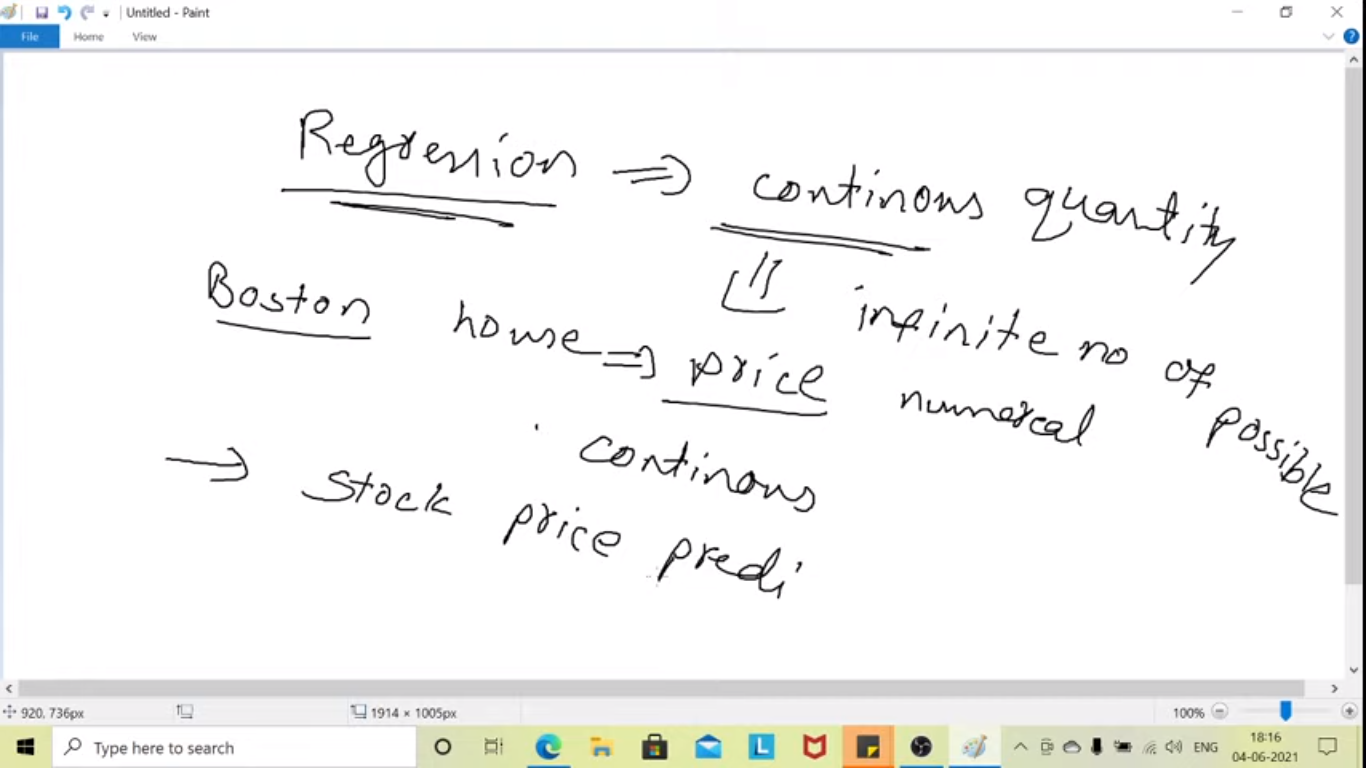 Untitled - Paint
File Home View
Regression ⇒ continous quantity
infinite no of possible
Boston house ⇒ price numercal
continous
→ Stock price predi
920, 736px 1914 × 1005px 100%
Type here to search L ENG 18:16
04-06-2021